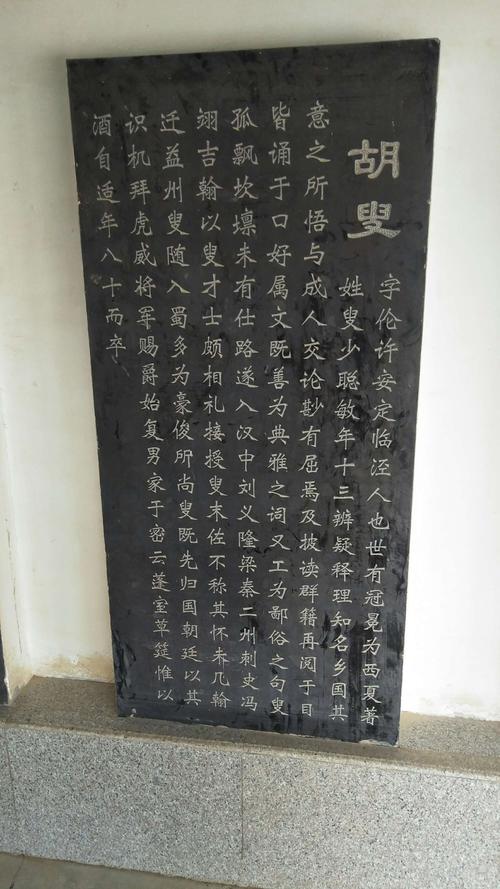 胡叟
字伦许安定临泾人也世有冠冕为西夏著
姓叟少聪敏年十三辨疑释理知名乡国其
意之所悟与成人交论尠有屈焉及披读群籍再阅于目
皆诵于口好属文既善为典雅之词又工为鄙俗之句叟
孤飘坎壈未有仕路遂入汉中刘义隆梁秦二州刺史冯
翊吉翰以叟才士颇相礼接授叟末佐不称其怀未几翰
迁益州叟随入蜀多为豪俊所尚叟既先归国朝廷以其
识机拜虎威将军赐爵始复男家于密云蓬室草筵惟以
酒自适年八十而卒